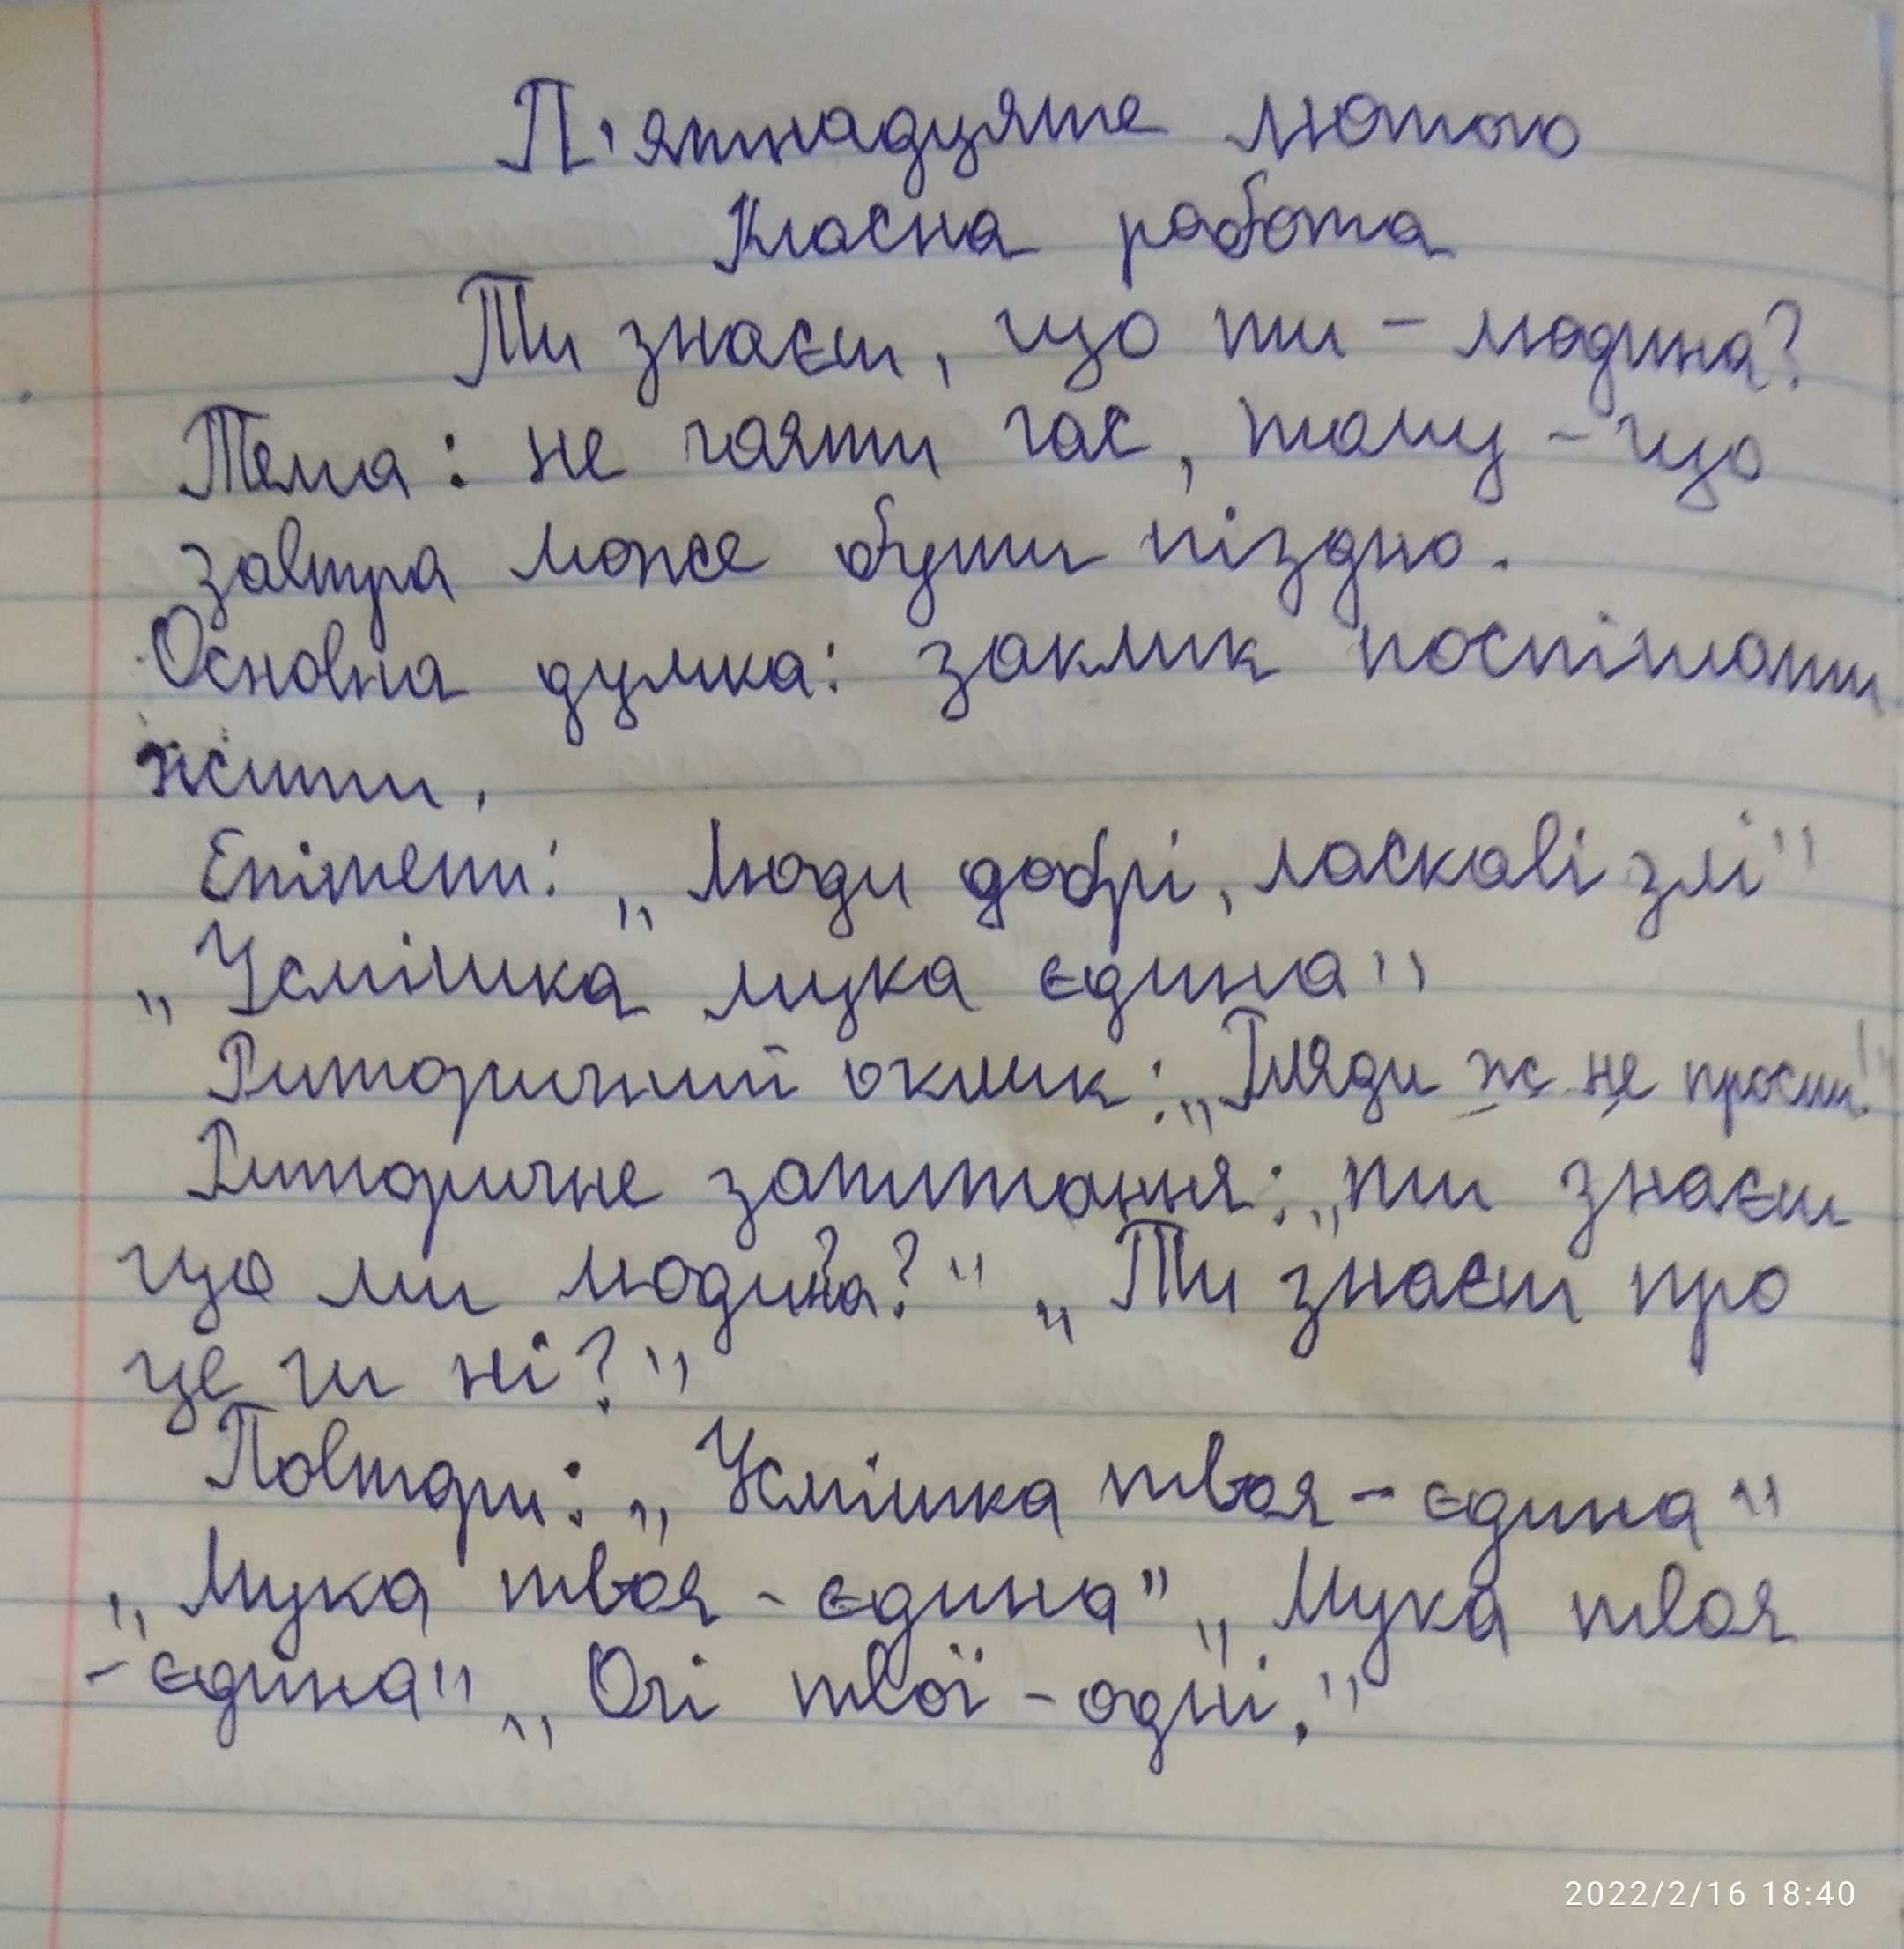 П'ятнадцяте лютого
Класна работа
Ти знаєш, що ти – людина?
Тема: не гаяти час, тому-що
завтра може бути піздно.
Основна думка: заклик поспішати
жити.
Епітети: „Люди добрі, ласкаві злі"
„Усмішка мука єдина"
Риторичний оклик: „Гляди ж не проспи!"
Риторичне запитання: „ти знаєш
що ми людина?" „Ти знаєш про
це чи ні?"
Повтори: „Усмішка твоя – єдина"
„Мука твоя - єдина" „Мука твоя
- єдина" „Очі твої – одні."
2022/2/16 18:40